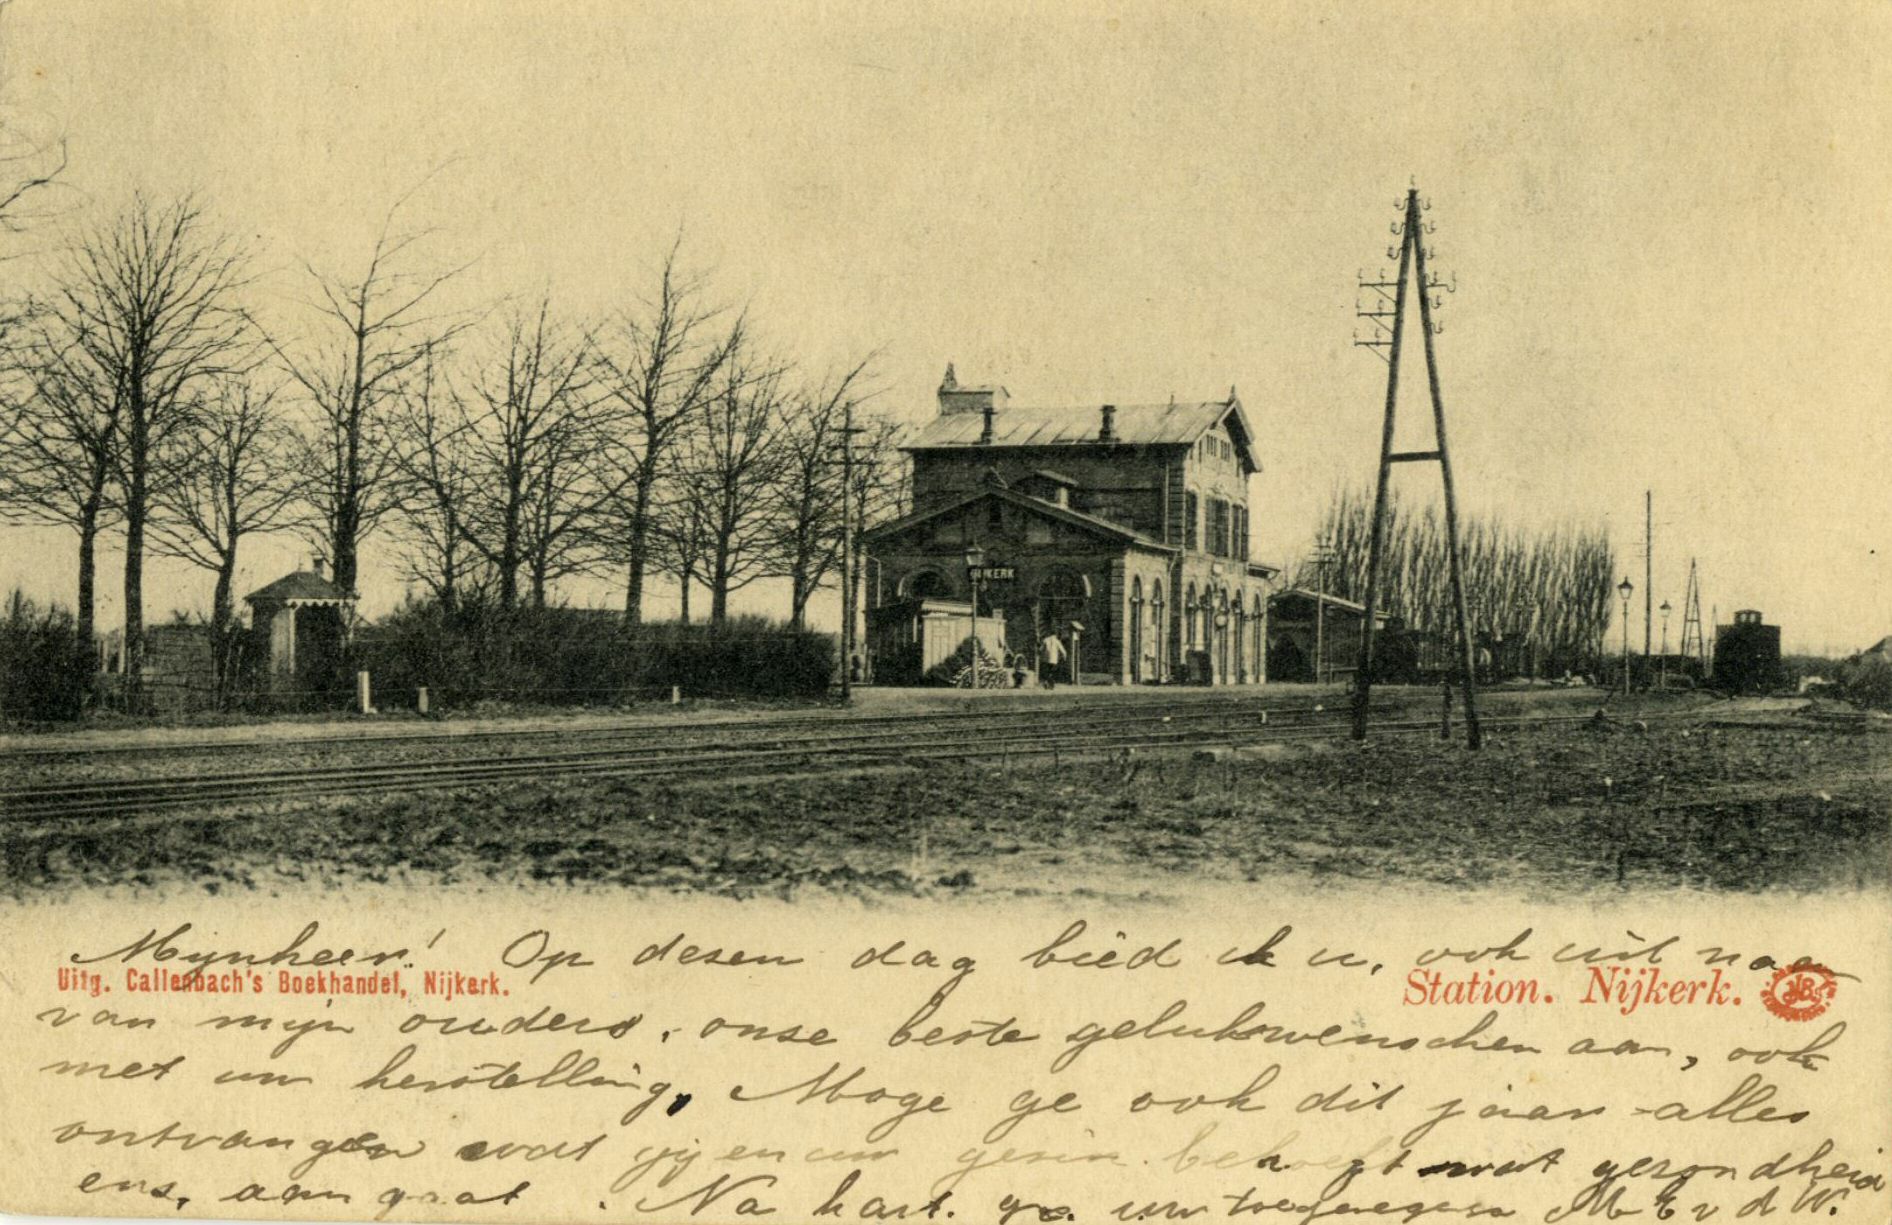 NIJKERK
Mijnheer! Op desen dag biëd ik u, ook uit naam
Uitg. Callenbach's Boekhandel, Nijkerk.
Station. Nijkerk.
van mijn ouders, onse beste gelukwenschen aan, ook
met uw herstelling, Moge ge ook dit jaar alles
ontvangen wat gij en uw gesin behoeft wat gezondheid
ens. aan gaat. Na hart. gr. uw toegenegen M E v d W.